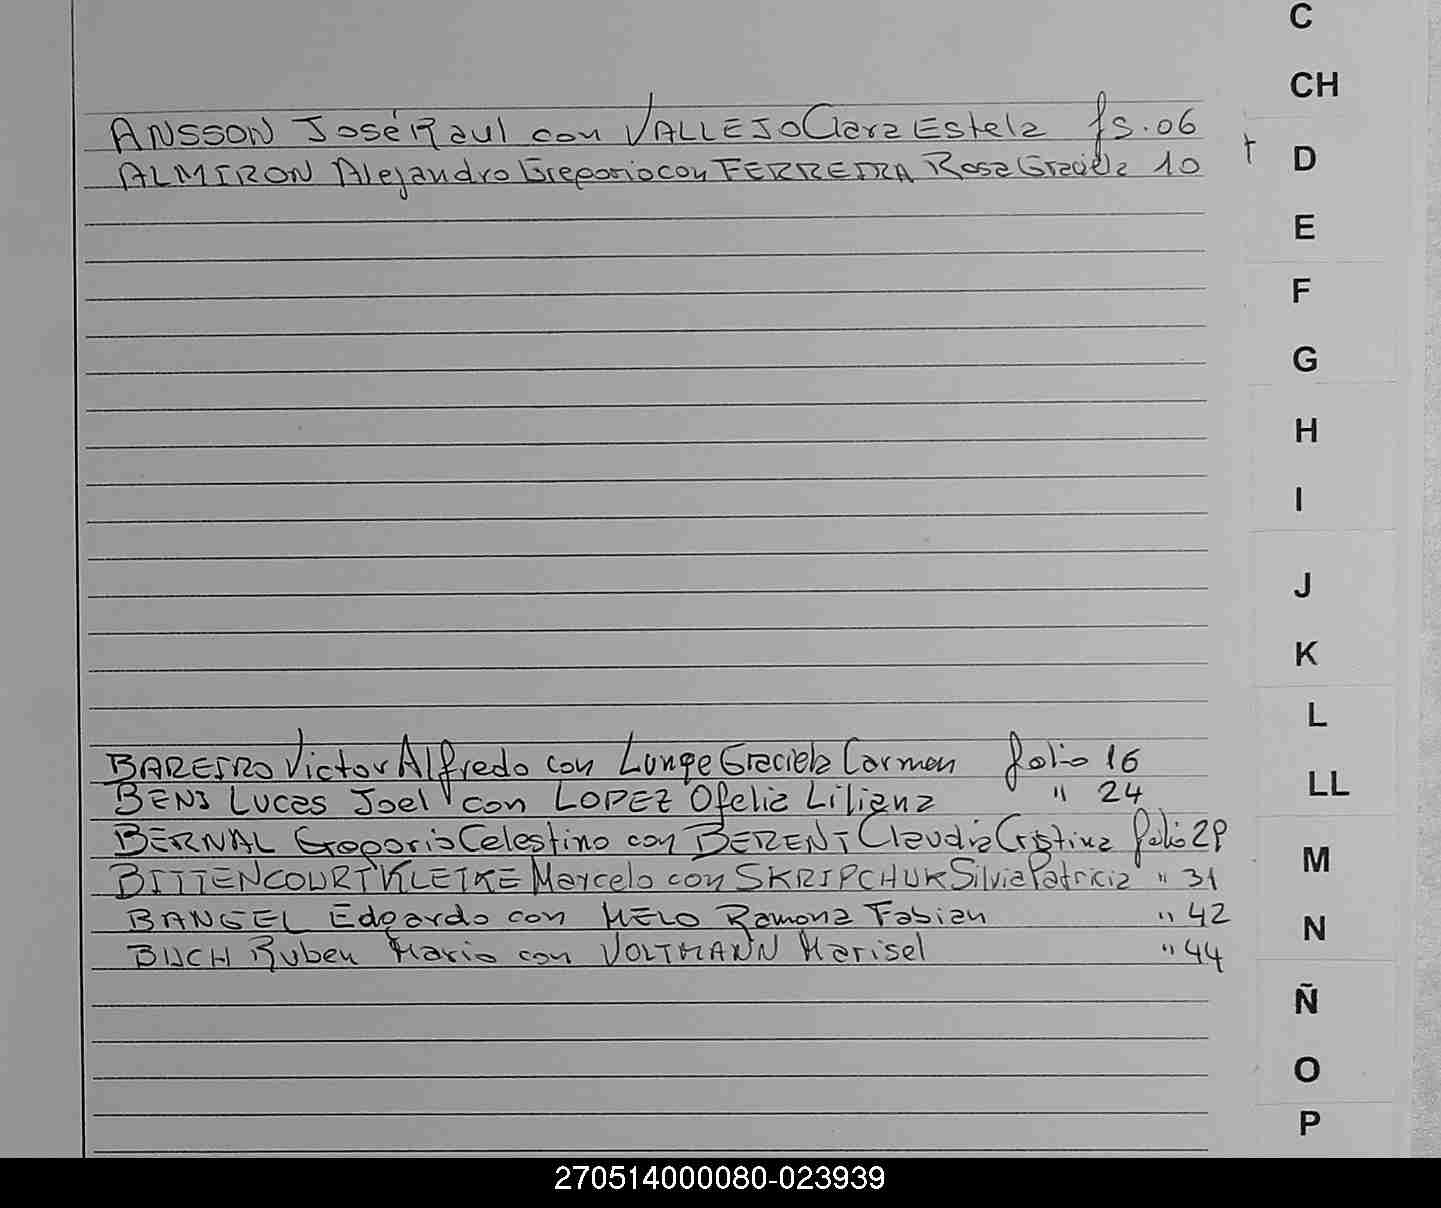 C
CH
ANSSON José Raul con VALLEJO Clara Estela fs. 06
D
ALMIRON Alejandro Gregorio con FERREIRA Rosa Graciela 10
E
F
G
H
I
J
K
L
BAREIRO Victor Alfredo con Lunge Graciela Carmen folio 16
LL
BENI Lucas Joel con LOPEZ Ofelia Liliana " 24
BERNAL Gregorio Celestino con BERENT Claudia Cristina folio 29
M
BITTENCOURT KLEIKE Marcelo con SKRIPCHUK Silvia Patricia " 31
BANGEL Edgardo con MELO Ramona Fabian " 42
N
BUCH Ruben Mario con VOLTMANN Marisel " 44
Ñ
O
P
270514000080-023939